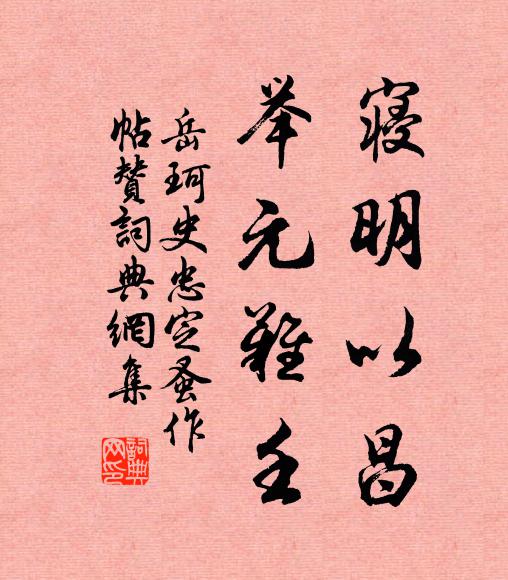 寝明以昌
举元难壬
岳珂史忠定蚤作
帖赞词典網集
詞典网印